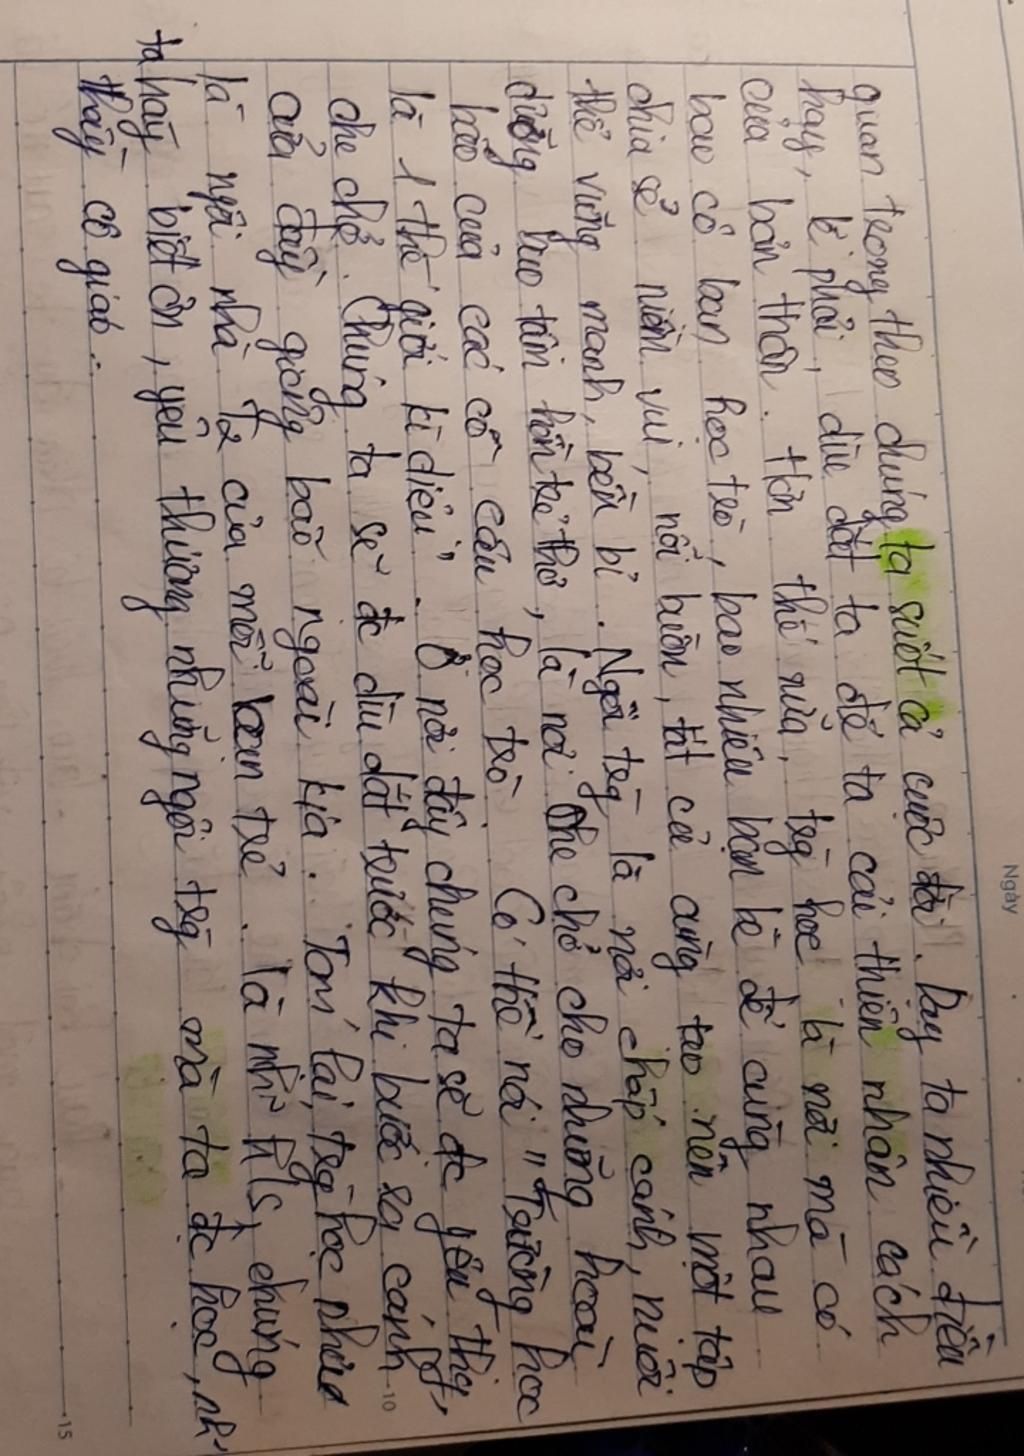 Ngày
quan trọng theo chúng ta suốt cả cuộc đời. Dạy ta nhiều điều
hay, lẽ phải, dìu dắt ta để ta cải thiện nhân cách
của bản thân. Hơn thế nữa, trg học là nơi mà có
bao cô bạn học trò, bao nhiêu bạn bè để cùng nhau
chia sẻ niềm vui, nỗi buồn, tất cả cũng tạo nên một tập
thể vững mạnh, bền bỉ. Ngôi trg là nơi chắp cánh, nuôi
dưỡng bao tâm hồn trẻ thơ, là nơi che chở cho những hoài
bão của các cô cậu học trò. Có thể nói "Trường học
là 1 thế giới kì diệu". Ở nơi đây chúng ta sẽ đc yêu thg,
che chở. Chúng ta sẽ đc dìu dắt trước khi bước ra cánh
cửa đầy giông bão ngoài kia. Tóm lại, trg học như
là ngôi nhà t2 của mỗi con trẻ. Là nhg hs, chúng
ta hãy biết ơn, yêu thương những ngôi trg mà ta đc học,
thầy cô giáo.
10
15